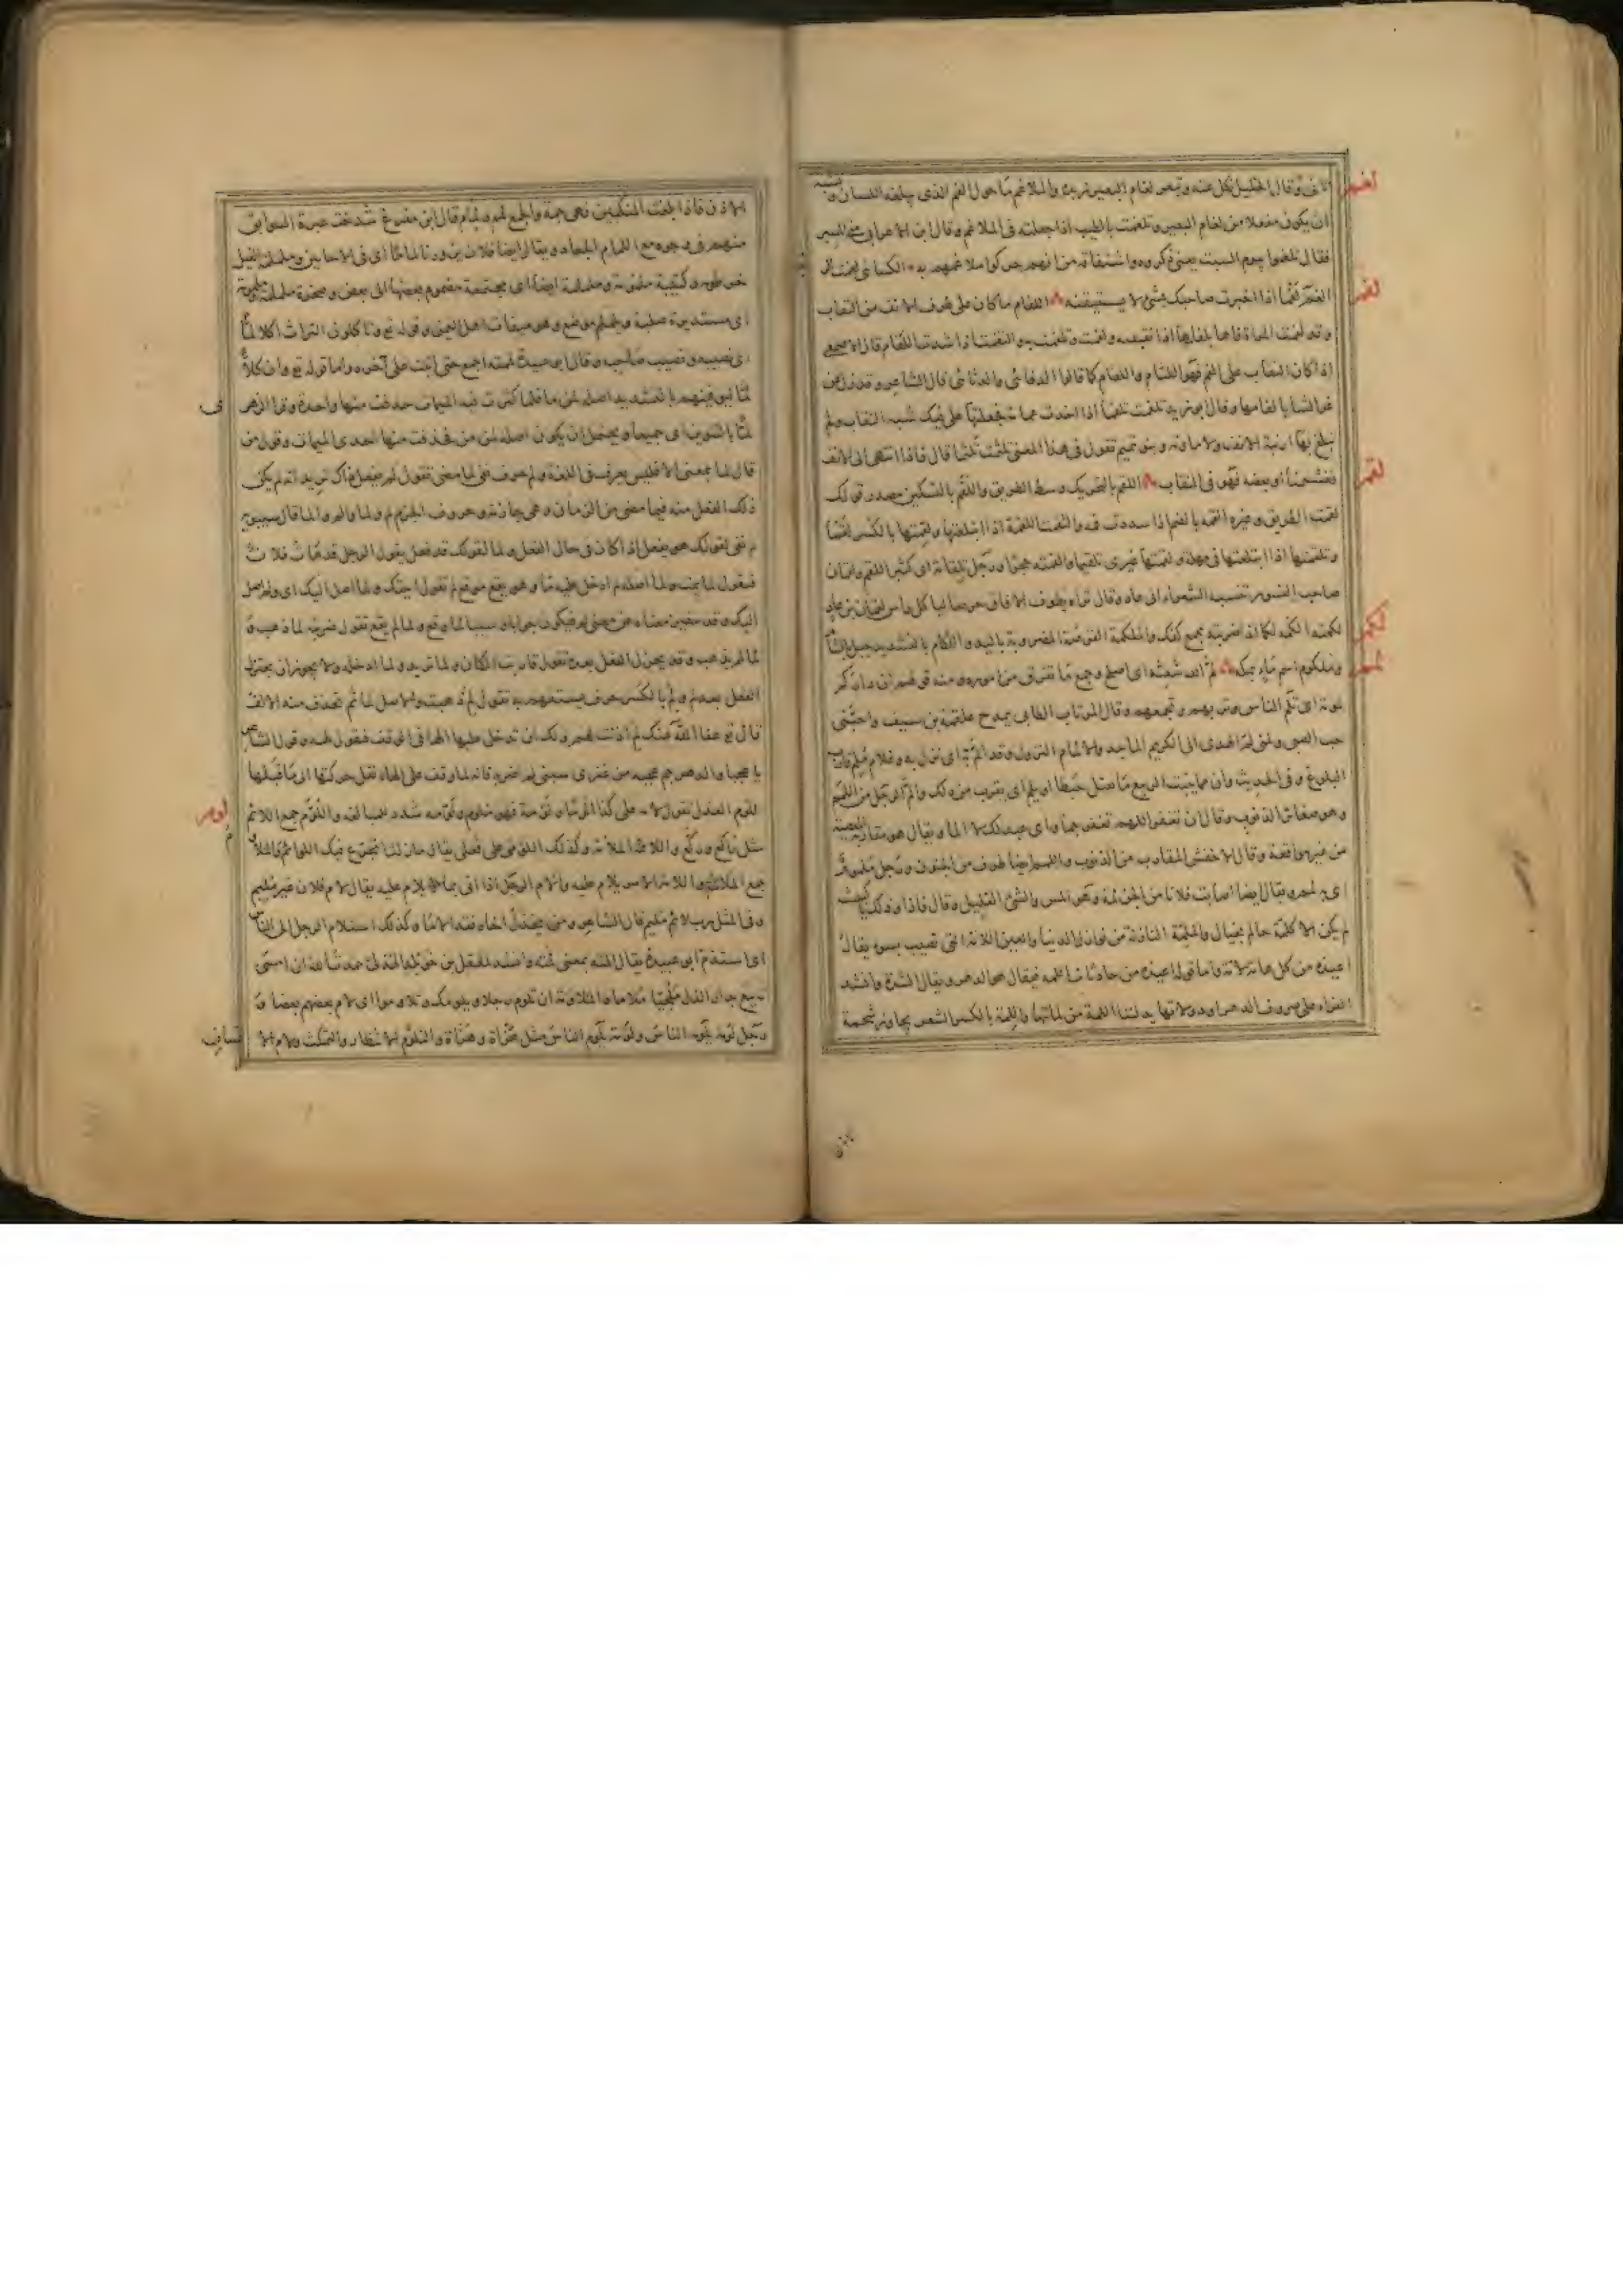 لغم
وقال الخليل لكل عنه وتبصر لغام البعير زبده والملاغم ما حول الفم الذي يبلغه اللسان
ان يكون مفعلا من لغام البعير وتلغمت بالطيب اذا جعلته في الملاغم وقال ابن الاعرابي
فقال تلغموا بيوم السبت يعني ذكروه واشتقاقه من انهم حركوا ملاغمهم به الكسائي لغمت
لغم لغما اذا اخبرت صاحبك بشئ لا يستيقنه اللفام ما كان على طرف الانف من النقاب
لفم
وقد لفمت المراة فاها بلفامها اذا نقبته ولفمت وتلفمت والتفمت اذا شدت اللفام قال الاصمعي
اذا كان النقاب على الفم فهو اللثام واللفام كما قالوا الدفائي والدثائي قال الشاعر
غر الشنايا لفامها وقال ابو زيد تلفمت تلفما اذا اخذت عمامة فجعلتها على فيك شبه النقاب ولم
تبلغ بها ارنبة الانف ولا مارنه وبنو تميم تقول في هذا المعنى تلثمت تلثما قال فاذا انتهى الى الانف
او بعضه فهو النقاب اللقم بالتحريك وسط الطريق واللقم بالتسكين مصدر قولك
لقم
لقمت الطريق وغيره القمه بالضم اذا سددت فمه والتقمت اللقمة اذا ابتلعتها ولقمتها بالكسر لقما
وتلقمتها اذا ابتلعتها في مهلة ولقمتها غيري تلقيما والقمته حجرا ورجل تلقامة اى كثير اللقم ولقمان
صاحب النسور تنسبه الشعراء الى عاد وقال تراه يطوف الافاق حرصا لياكل راس لقمان بن عاد
لكم
لكمته الكمه لكما اذا ضربته بجمع كفك والملكمة القرصة المضروبة باليد واللكام بالتشديد جبل بالشام
وملكوم اسم ماء بمكة لم الله شعثه اى اصلح وجمع ما تفرق من اموره ومنه قولهم ان داركم
لمم
لمومة اى تلم الناس وتربهم وتجمعهم وقال المرناب الطابي يمدح علقمة بن سيف واحبني
حب الصبي ولمني لم الهدى الى الكريم الماجد والالمام النزول وقد الم به اى نزل به وغلام ملم قارب
البلوغ وفي الحديث وان مما ينبت الربيع ما يقتل حبطا او يلم اى يقرب من ذلك والم الرجل من اللمم
وهو صغار الذنوب وقال ان تغفر اللهم تغفر جما واى عبد لك لا الما ويقال هو مقاربة المعصية
من غير مواقعة وقال الاخفش المقارب من الذنوب واللمم ايضا طرف من الجنون ورجل ملموم
اى به لمم ويقال ايضا اصابت فلانا من الجن لمة وهو المس والشئ القليل وقال فاذا وذلك يا كبيشة
لم يكن الا كلمة حالم بخيال والملمة النازلة من نوازل الدنيا والعين اللامة التي تصيب بسوء يقال
اعيذه من كل هامة ولامة واما قوله اعيذه من حادثات اللمه فيقال هو الدهر ويقال الشدة وانشد
الفراء على صروف الدهر او دولاتها يدلننا اللمة من لماتها واللمة بالكسر الشعر يجاوز شحمة
الاذن فاذا بلغت المنكبين فهي جمة والجمع لمم ولمام قال ابن مفرغ شدخت غرة السوابق
منهم في وجوه مع اللمام الجعاد ويقال ايضا فلان يزورنا لماما اى في الاحايين وململمة الفيل
خرطومه وكتيبة ململمة وملمومة ايضا اى مجتمعة مضموم بعضها الى بعض وصخرة ململمة ملمومة
اى مستديرة صلبة ويلملم موضع وهو ميقات اهل اليمن وقوله تع وتاكلون التراث اكلا لما
اى نصيبه ونصيب صاحبه وقال ابو عبيدة لممته اجمع حتى اتيت على آخره واما قوله تع وان كلا
لما ليوفينهم بالتشديد اصله لمن ما فلما كثرت فيه الميمات حذفت منها واحدة وقرا الزهري
لما بالتنوين اى جميعا ويحتمل ان يكون اصله لمن من فحذفت منها احدى الميمات وقول من
قال لما بمعنى الا فليس يعرف في اللغة ولم حرف نفي لما مضى تقول لم يفعل ذاك تريد انه لم يكن
ذلك الفعل منه فيما مضى من الزمان وهي جازمة وحروف الجزم لم ولما والم والما قال سيبويه
لم نفي لقولك هو يفعل اذا كان في حال الفعل ولما لقولك قد فعل يقول الرجل قد مات فلان
فتقول لما يمت ولما اصله لم ادخل عليه ما وهو يقع موقع لم تقول اتيتك ولما اصل اليك اى ولم اصل
اليك وقد يتغير معناه عن معنى لم فيكون جوابا وسببا لما وقع ولما لم يقع تقول ضربته لما ذهب و
لما لم يذهب وقد يختزل الفعل بعده تقول قاربت المكان ولما تريد ولما ادخله ولا يجوز ان يختزل
الفعل بعد لم ولم بالكسر حرف يستفهم به تقول لم ذهبت والاصل لما ثم تحذف منه الالف
قال تع عفا الله عنك لم اذنت لهم ولك ان تدخل عليها الها في الوقف فتقول لمه وقول الشاعر
يا عجبا والدهر جم عجبه من عنزي سبني لم اضربه فانه لما وقف على الهاء نقل حركتها الى ما قبلها
لوم
اللوم العذل تقول لامه على كذا لوما ولومة فهو ملوم ولومه شدد للمبالغة واللوم جمع اللائم
مثل راكع وركع واللائمة الملامة وكذلك اللومى على فعلى يقال ما زلت اتجرع فيك اللوائم والملاوم
جمع الملامة واللامة الامر يلام عليه والام الرجل اذا اتى بما يلام عليه يقال لام فلان غير مليم
وفي المثل رب لائم مليم قال الشاعر ومن يخذل اخاه فقد الاما وكذلك استلام الرجل الى الناس
اى استذم ابو عبيدة يقال المته بمعنى لمته وانشد لمعقل بن خويلد الهذلي حمدت الله ان امسى
ربيع بدار الذل ملحيا ملاما والملاومة ان تلوم رجلا ويلومك وتلاوموا اى لام بعضهم بعضا و
رجل لومة يلومه الناس ولومة يلوم الناس مثل هزأة وهزأة والتلوم الانتظار والتمكث ولام الا
نسان